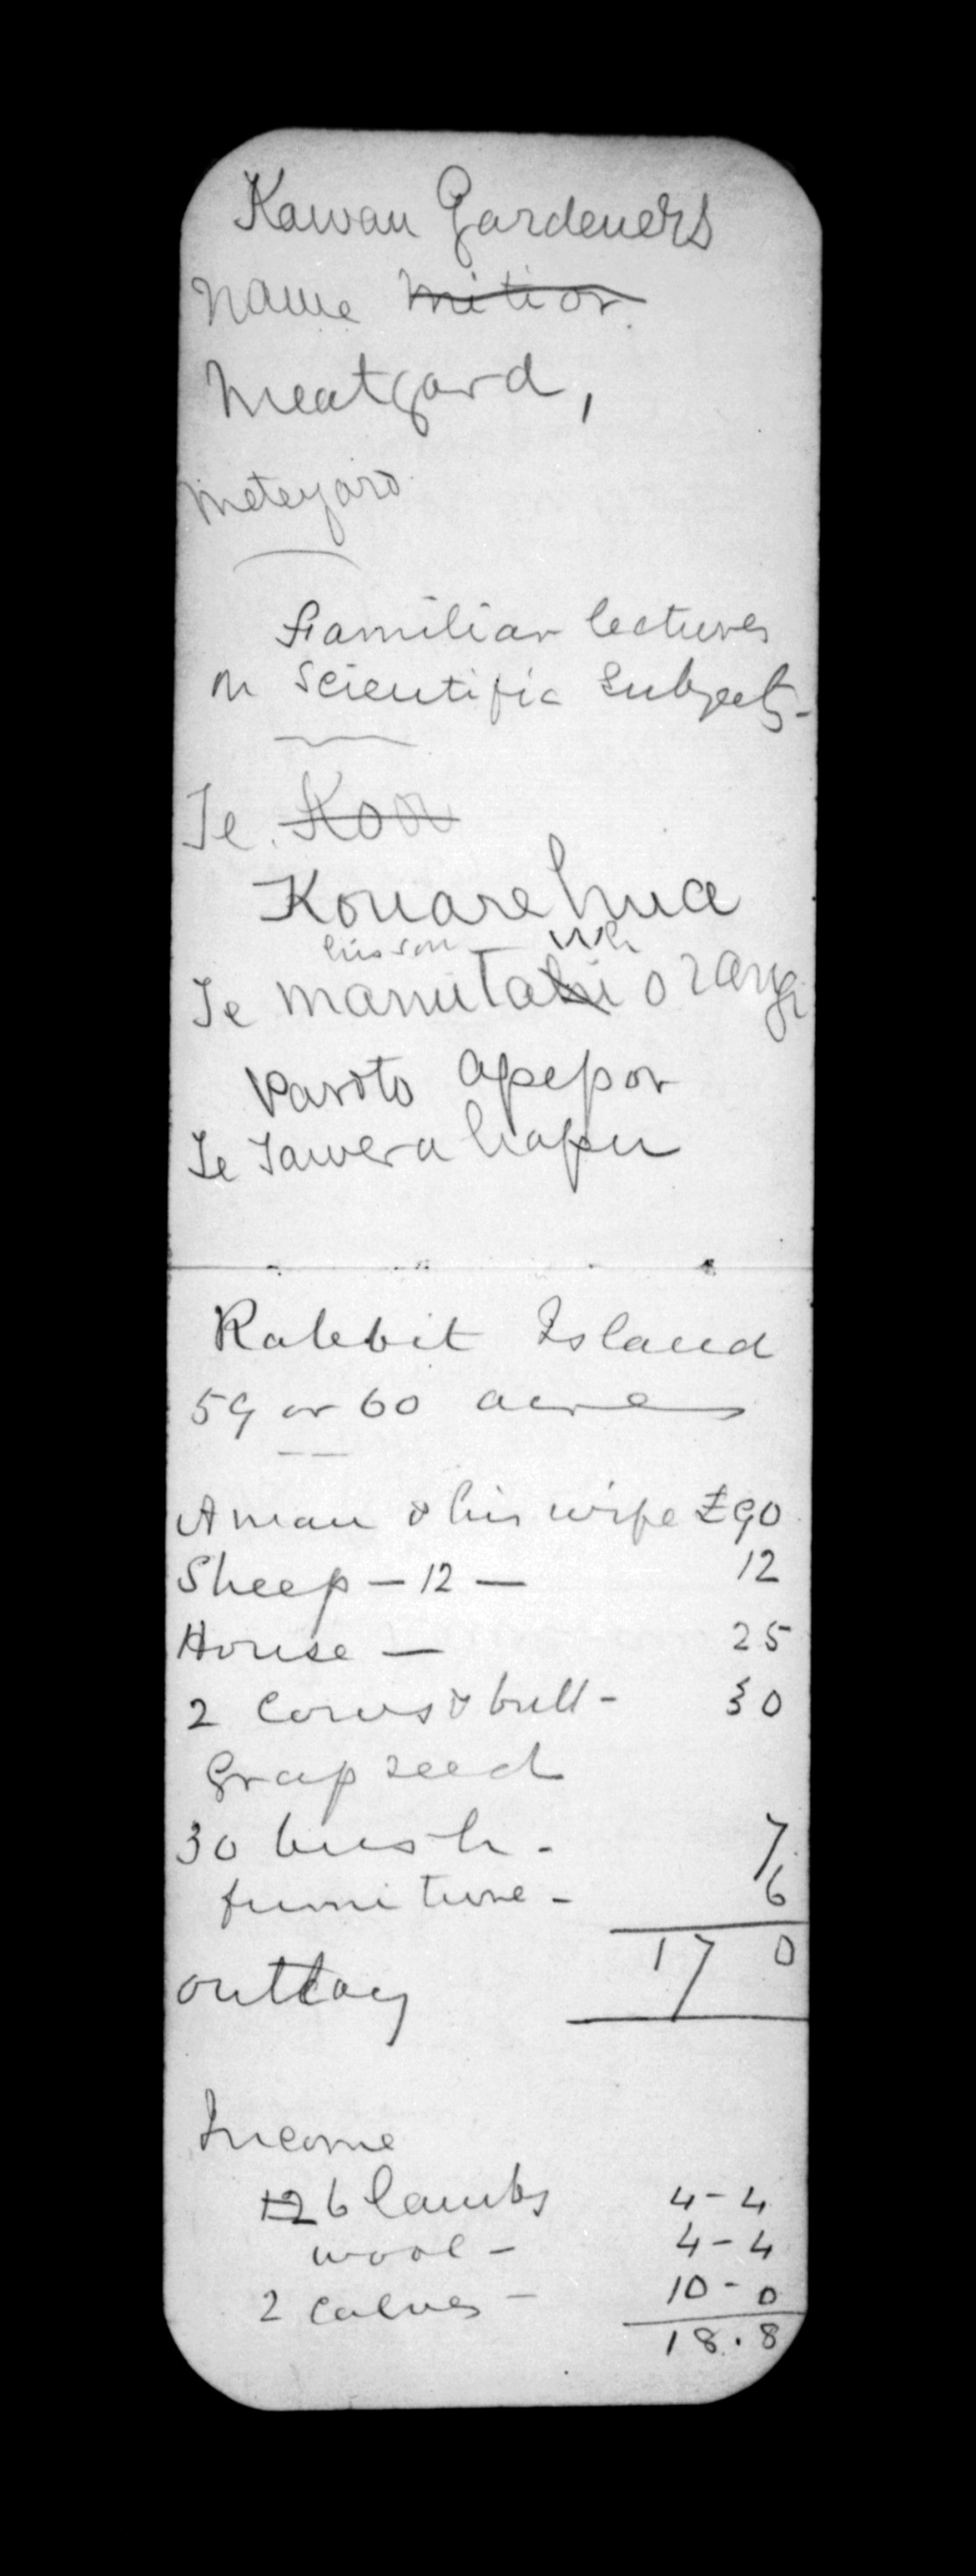 Kawau Gardeners
name mitior
Meatgard,
Meteyard
Familiar lectures
on Scientific Subjects -
Te Koa
Kouarehua
his son
Te manutahi o rangi
Paroto apepor
Te Tawera hapu
Rabbit Island
59 or 60 acres
A man & his wife £90
Sheep - 12 - 12
House - 25
2 Cows & bull - 30
Grass seed
30 bush - 7
furniture - 6
outlay 170
Income
12 6 lambs 4-4
wool - 4-4
2 calves - 10-0
18.8